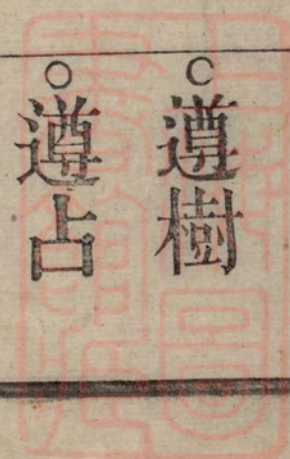 ○遵樹
○遵占